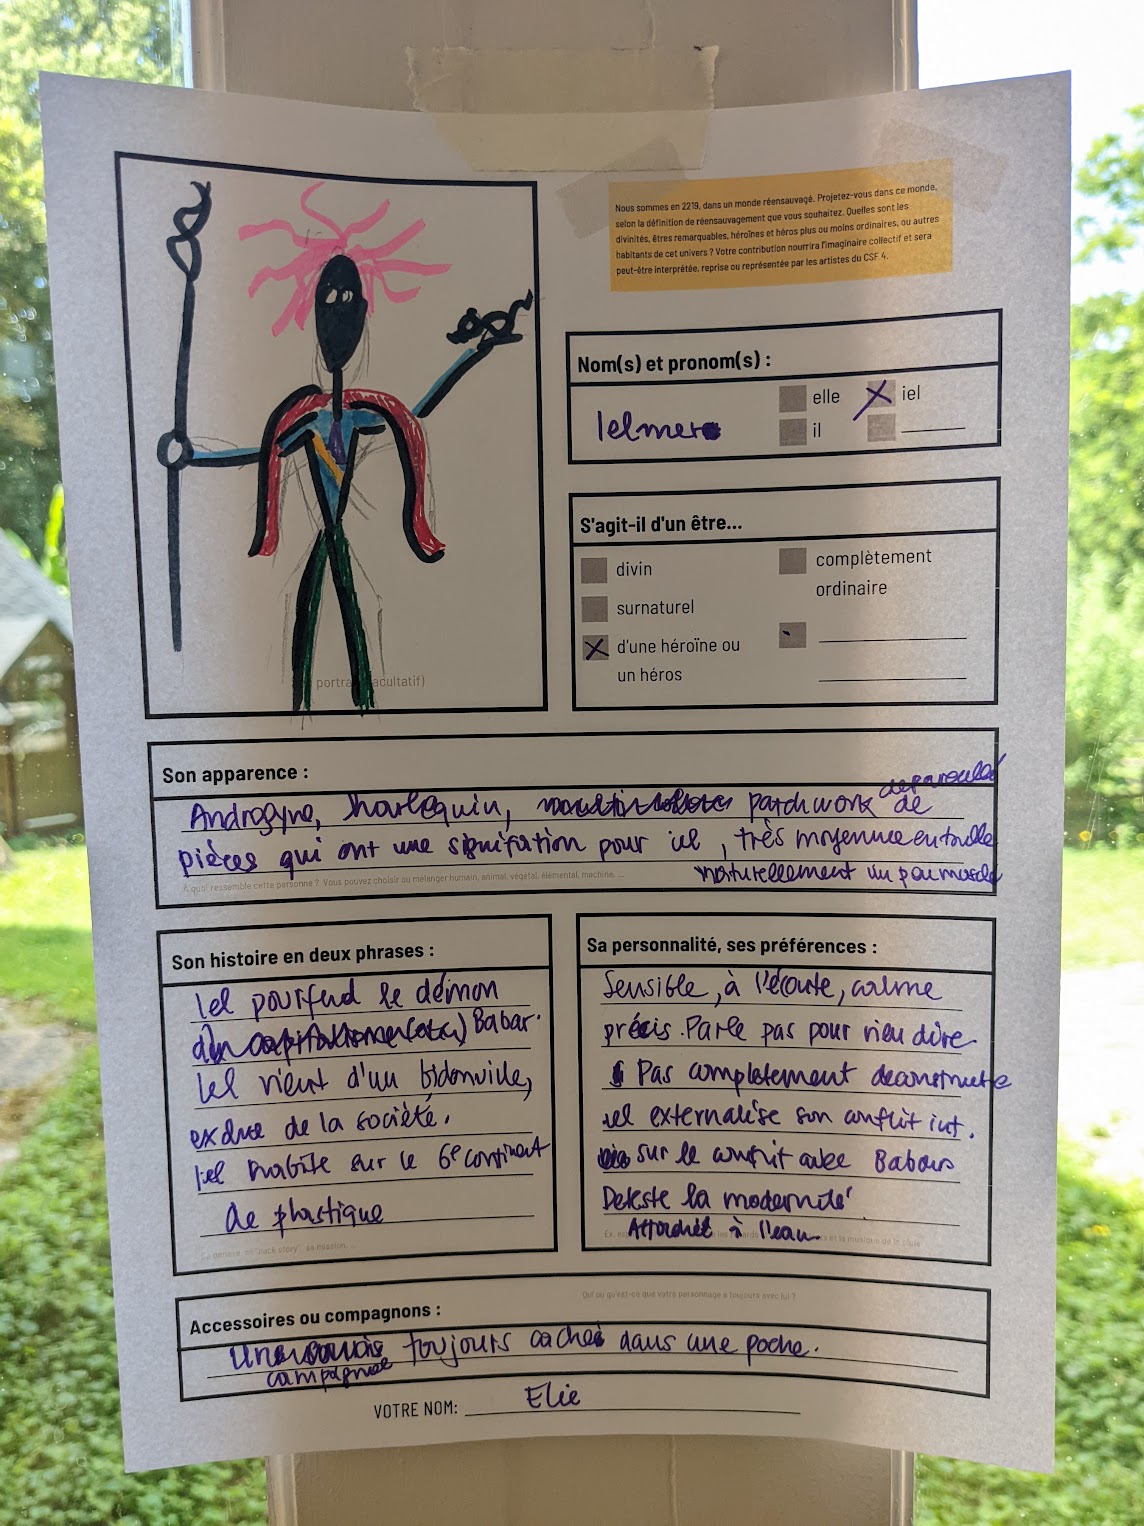 Nous sommes en 2219, dans un monde réensauvagé. Projetez-vous dans ce monde,
selon la définition de réensauvagement que vous souhaitez. Quelles sont les
divinités, êtres remarquables, héroïnes et héros plus ou moins ordinaires, ou autres
habitants de cet univers ? Votre contribution nourrira l'imaginaire collectif et sera
peut-être interprétée, reprise ou représentée par les artistes du CSF 4.
portrait facultatif)
Nom(s) et pronom(s) :
elle
iel
il
Ielmer
S'agit-il d'un être...
divin
complètement
ordinaire
surnaturel
d'une héroïne ou
un héros
Son apparence :
Androgyne, patchwork de
pièces qui ont une signifation pour iel, très moyenne en taille
naturellement un peu musclé
À quoi ressemble cette personne ? Vous pouvez choisir ou mélanger humain, animal, végétal, élémental, machine, ...
Son histoire en deux phrases :
Iel pourfend le démon
du capitalisme Babar.
Iel vient d'un bidonville,
exclue de la société.
iel habite sur le 6e continent
de plastique
Sa personnalité, ses préférences :
Sensible, à l'écoute, calme
précis. Parle pas pour rien dire.
Pas completement deconstruite
iel externalise son conflit int.
sur le conflit avec Babar
Deteste la modernité
Attaché à l'eau.
Accessoires ou compagnons :
Qui ou qu'est-ce que votre personnage a toujours avec lui ?
Une souris toujours caché dans une poche.
campagnol
VOTRE NOM: Elie